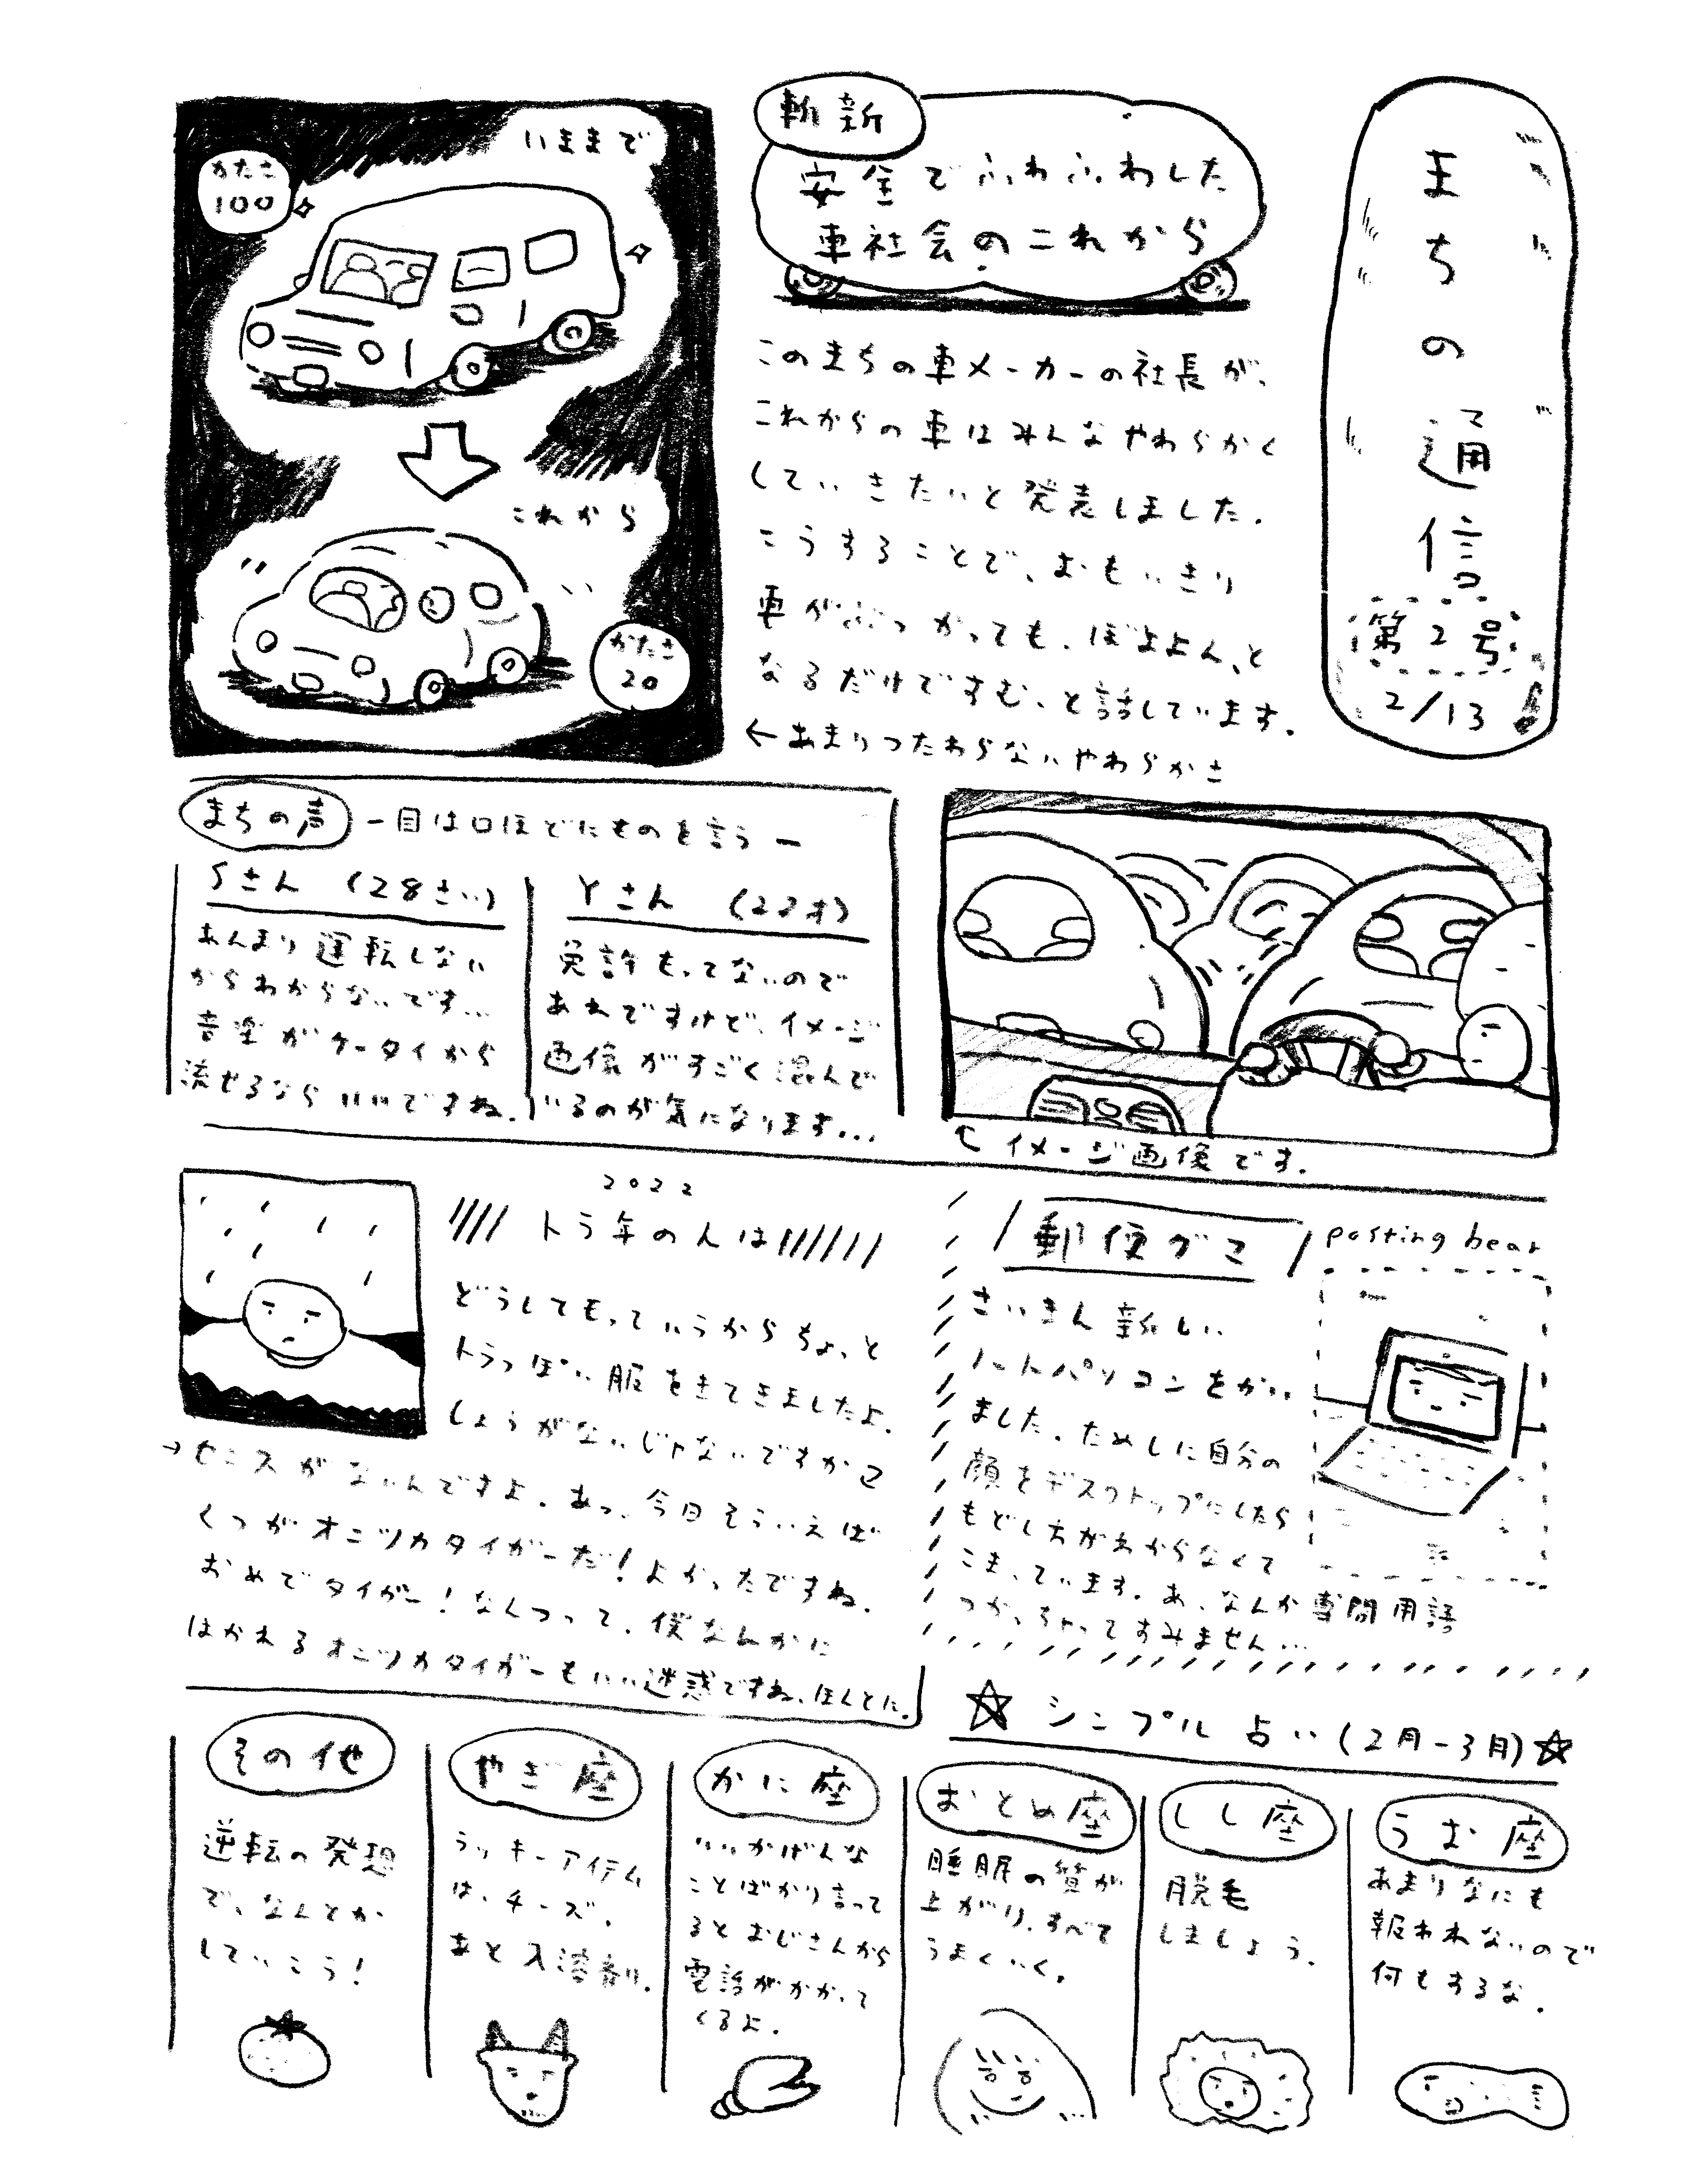 まちの通信
第2号
2/13
斬新
安全でふわふわした
車社会のこれから
このまちの車メーカーの社長が、
これからの車はみんなやわらかく
していきたいと発表しました.
こうすることで、おもいきり
車がぶつかっても、ぼよよん、と
なるだけですむ、と話しています.
←あまりつたわらないやわらかさ
いままで
かたさ
100
これから
かたさ
20
まちの声
ー目は口ほどにものを言うー
Sさん (28さい)
あんまり運転しない
からわからないです...
音楽がケータイから
流せるならいいですね.
Yさん (22才)
免許もってないので
あれですけど、イメージ
画像がすごく混んで
いるのが気になります...
イメージ画像です.
2022
トラ年の人は
どうしてもっていうからちょっと
トラっぽい服をきてきましたよ.
しょうがないじゃないですか
→センスがないんですよ. あっ、今日そういえば
くつがオニツカタイガーだ!よかったですね.
おめでタイガー!なんつって. 僕なんかに
はかれるオニツカタイガーもいい迷惑ですね、ほんとに.
郵便グマ
posting bear
さいきん新しい
ノートパソコンをかい
ました. ためしに自分の
顔をデスクトップにしたら
もどし方がわからなくて
こまっています. あ、なんか専門用語
つかっちゃってすみません...
シンプル占い(2月-3月)
うお座
あまりなにも
報われないので
何もするな.
しし座
脱毛
しましょう.
おとめ座
睡眠の質が
上がり、すべて
うまくいく.
かに座
いいかげんな
ことばかり言って
るとおじさんから
電話がかかって
くるよ.
やぎ座
ラッキーアイテム
は、チーズ.
あと入溶剤.
その他
逆転の発想
で、なんとか
していこう!